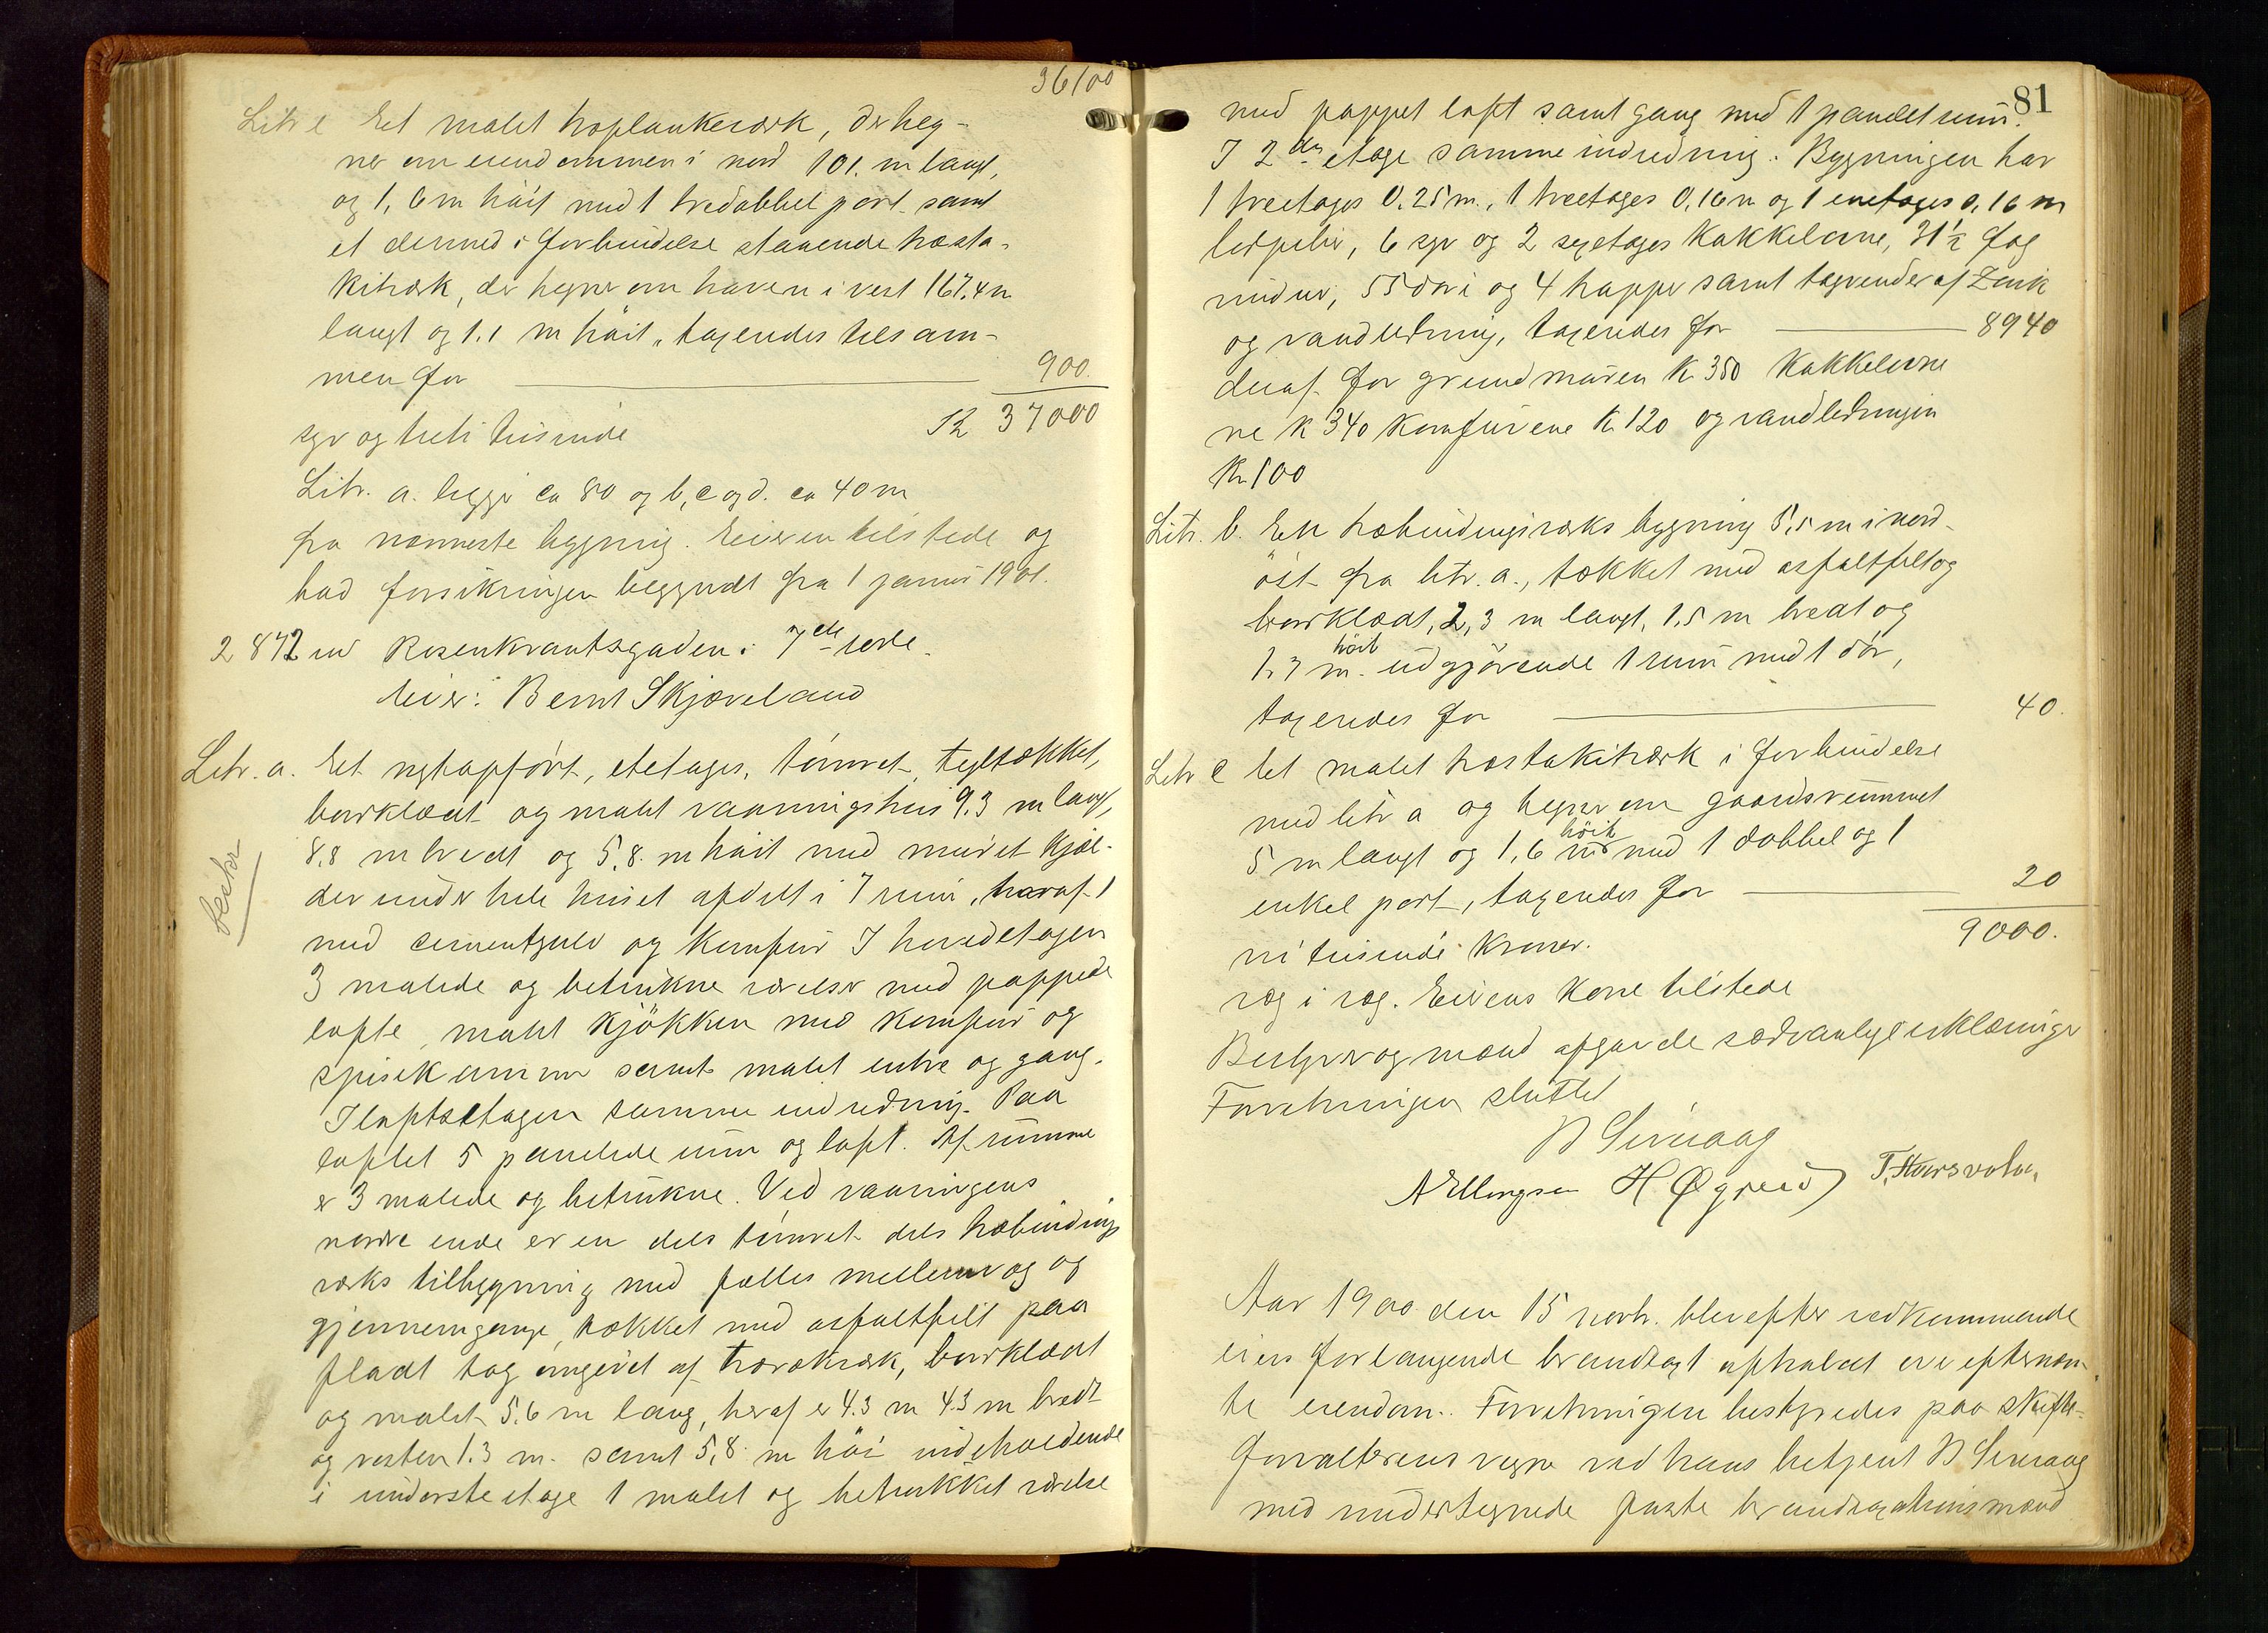 36100
Litr e Et malet træplankeværk, der heg-
ner om eiendommen i nord 101. m langt,
og 1,6 m høit med 1 tredobbel port samt
et dermed i forbindelse staaende træsta-
kitværk, der hegner om haven i vest 167,4 m
langt og 1.1 m høit, taxeredes tilsam-
men for 900.
syv og treti tusinde K 37000
Litr. a. ligger ca 80 og b, c og d. ca 40 m
fra nærmeste bygning. Eieren tilstede og
bad forsikringen begyndt fra 1 januar 1901.
2872 ved Rosenkrantsgaden i 7de rode.
Eier: Bernt Skjæveland
Litr. a. Et nyt opført, etetages, tømret, tegltækket,
bordklædt og malet vaaningshus 9.3 m langt,
8,8 m bredt og 5,8 m høit med muret kjæl-
der under hele huset afdelt i 7 rum, hvoraf 1
med cementgulv og komfur I hovedetagen
3 malede og betrukne værelser med pappede
lofte, malet kjøkken med komfur og
spisekammer samt malet entre og gang.
I loftsetagen samme indredning. Paa
loftet 5 panelede rum og loft. Af rumme
er 3 malede og betrukne. Ved vaaningens
nordre ende er en dels tømret dels træbindings
værks tilbygning med fælles mellemvæg og
gjennemgange, tækket med asfaltfilt paa
fladt tag omgivet af træværk, bordklædt
og malet 5.6 m lang, heraf er 4.3 m 4.3 m bredt
og resten 1.3 m. samt 5,8 m høi indeholdende
i underste etage 1 malet og betrukket værelse
beskr
81
med pappet loft samt gang med 1 panelet rum.
I 2den etage samme indredning. Bygningen har
1 treetages 0,25 m., 1 treetages 0,16 m og 1 enetages 0,16 m
ledpiber, 6 syv og 2 sexetages kakkelovne, 31½ fag
vinduer, 55 døre og 4 trapper samt tagrender af Zink
og vandledning, taxeredes for 8940
deraf for grundmuren K 350 Kakkelovne
ne K 340 Komfurene K 120 og vandledningen
Kr 100
Litr. b. En træbindingsværks bygning 5,5 m i nord-
øst fra litr. a., tækket med asfaltfilt og
bordklædt, 2,3 m langt, 1.5 m bredt og
1.7 m høit udgjørende 1 rum med 1 dør,
taxeredes for 40.
Litr c Et malet træstakitværk i forbindelse
med litr a og hegner om gaardsrummet
5 m langt og 1,6 m høit med 1 dobbel og 1
enkel port, taxeredes for 20
9000.
ni tusinde kroner.
væg i væg. Eierens kone tilstede
Bestyrer og mænd afgav de sædvanlige erklæringer
Forretningen sluttet
N Sirevaag
A Ellingsen H Øgreid T. Haarsvolu
Aar 1900 den 15 novbr. blev efter vedkommende
eiers forlangende brandtaxt afholdt over efternævn-
te eiendom. Forretningen bestyredes paa skifte-
forvalterens vegne ved hans betjent N Sirevaag
med undertegnede faste brandtaxationsmænd